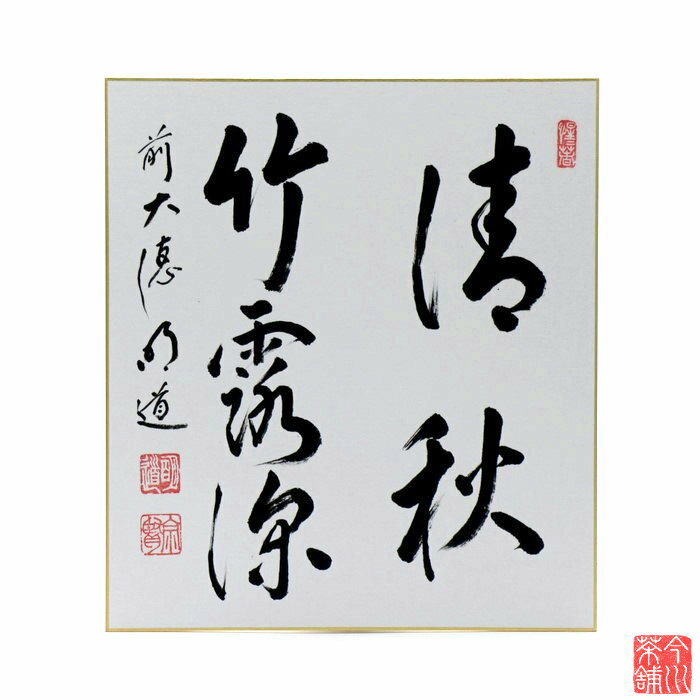 清秋
竹露深
前大徳明道
明道
今川
茶舗